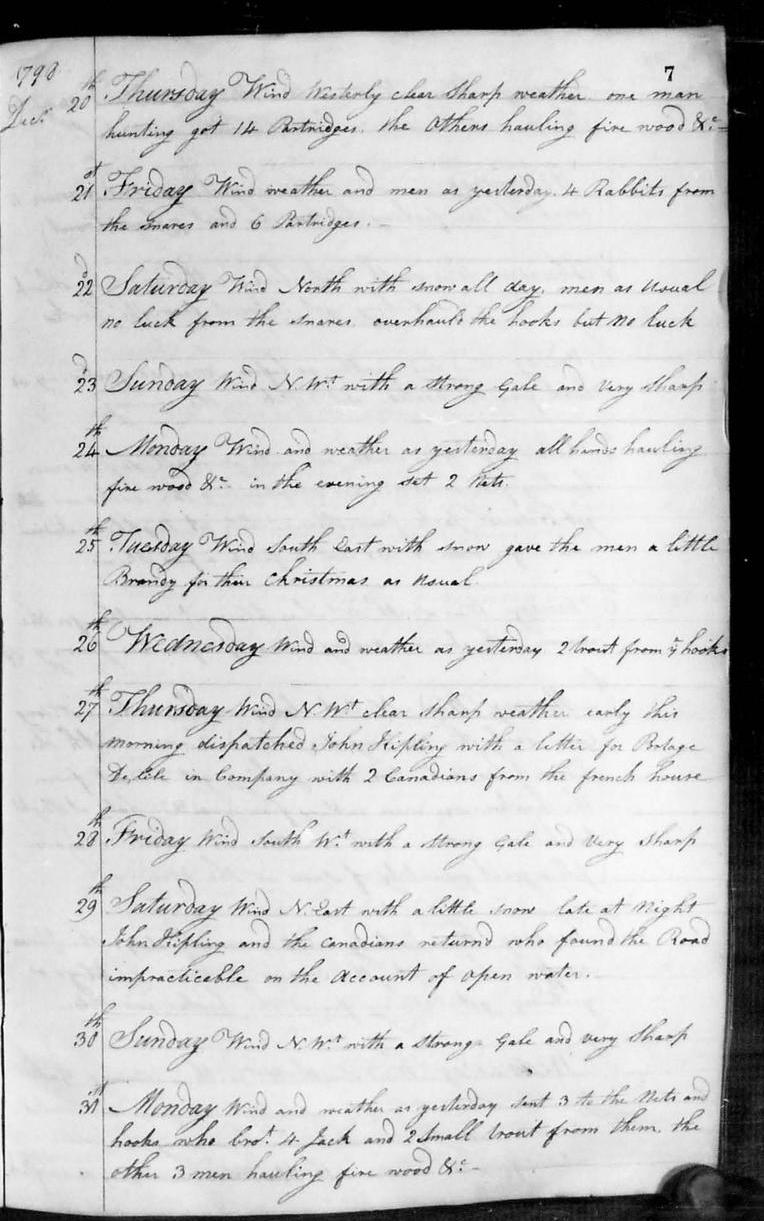 7
1798
Decr 20th Thursday Wind Westerly clear sharp weather one man
hunting got 14 Partridges. the Others hauling fire wood &c
21st Friday Wind weather and men as yesterday. 4 Rabbits from
the snares and 6 Partridges.
22d Saturday Wind North with snow all day. men as usual
no luck from the snares overhauld the hooks but no luck
23d Sunday Wind N.Wt with a strong Gale and very sharp
24th Monday Wind and weather as yesterday all hands hauling
fire wood &c in the evening set 2 Nets.
25th Tuesday Wind South East with snow gave the men a little
Brandy for their Christmas as usual.
26th Wednesday Wind and weather as yesterday 2 trout from ye hooks
27th Thursday Wind N.Wt clear sharp weather early this
morning dispatched John Kipling with a letter for
in Company with 2 Canadians from the french house
28th Friday Wind South Wt with a strong Gale and very sharp
29th Saturday Wind N.East with a little snow late at Night
John Kipling and the Canadians returnd who found the Road
impracticable on the Account of open water.
30th Sunday Wind N.Wt with a strong Gale and very sharp
31st Monday Wind and weather as yesterday sent 3 to the Nets and
hooks who brot. 4 Jack and 2 small trout from them. the
other 3 men hauling fire wood &c